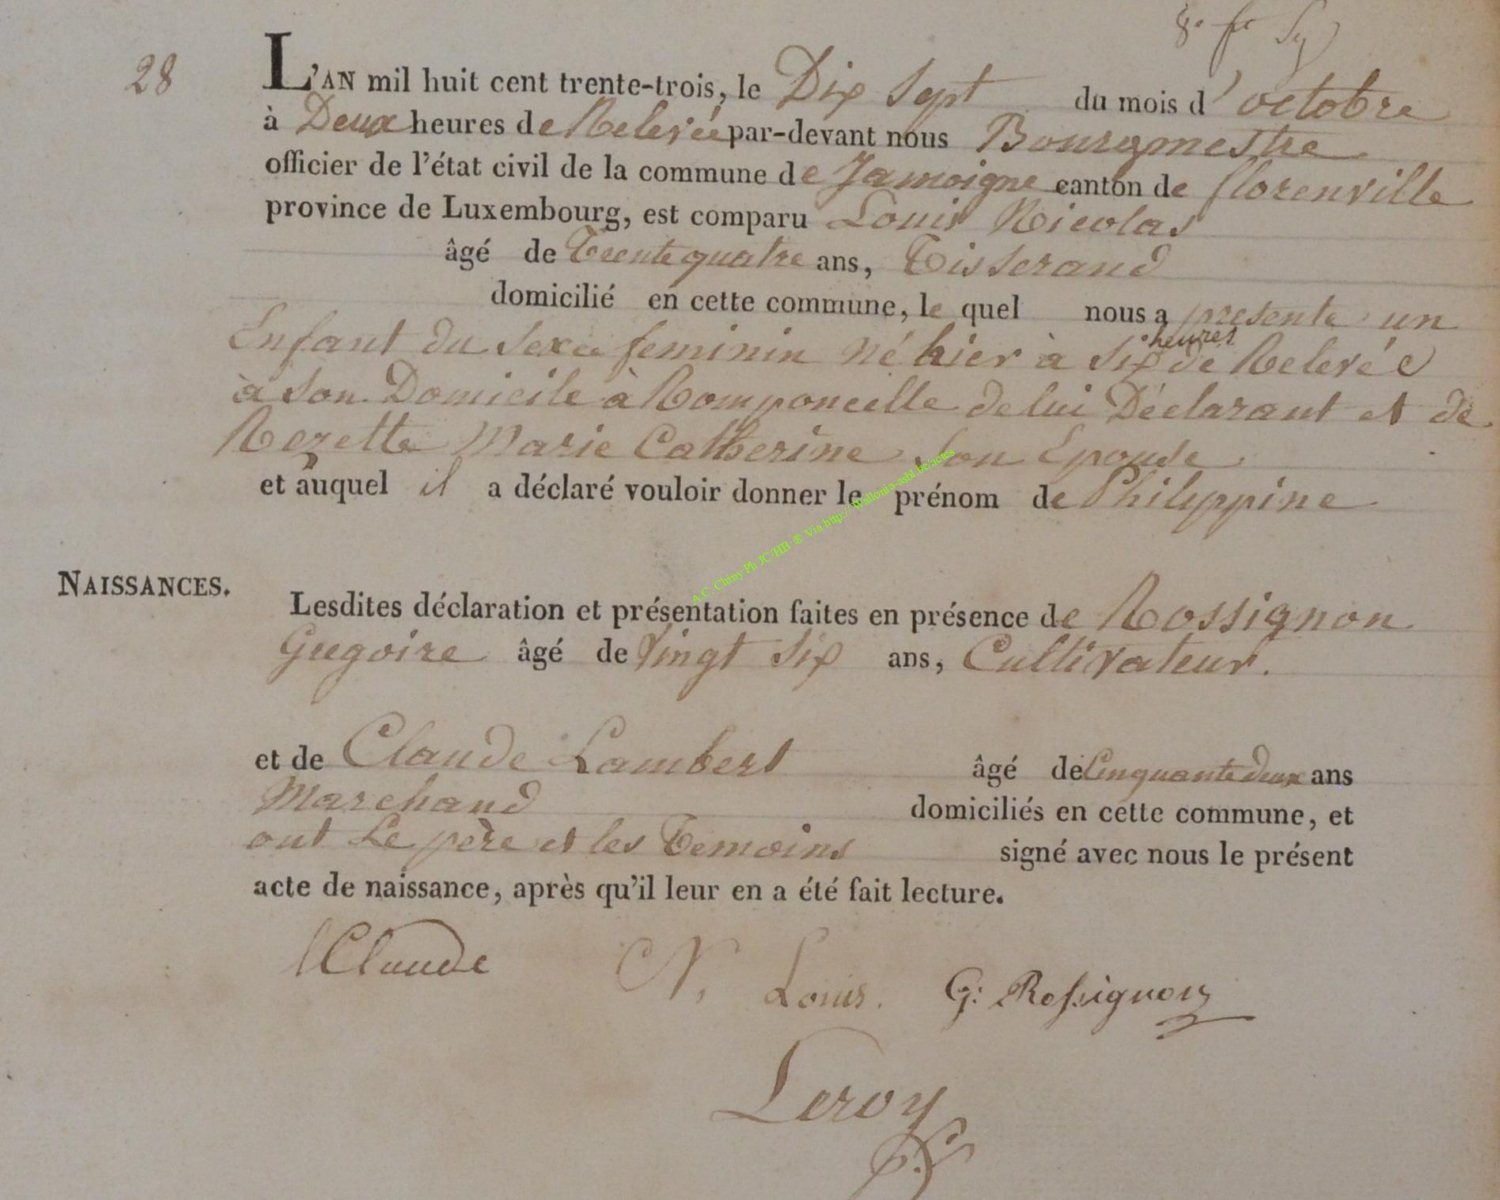 28
L'AN mil huit cent trente-trois, le Dix Sept du mois d'octobre
à Deux heures de Relevée par-devant nous Bourgmestre
officier de l'état civil de la commune de Jamoigne canton de florenville
province de Luxembourg, est comparu Louis Nicolas
âgé de Trente quatre ans, Tisserand
domicilié en cette commune, le quel nous a présenté un
Enfant du sexe feminin né hier à six heures de Relevée
à Son Domicile à Romponcelle de lui Déclarant et de
Rezette Marie Catherine Son Epouse
et auquel il a déclaré vouloir donner le prénom de Philippine
A.C. Chiny Ph JC/HB ® Via http://
NAISSANCES.
Lesdites déclaration et présentation faites en présence de Rossignon
Gregoire âgé de Vingt Six ans, Cultivateur.
et de Claude Lambert âgé de Cinquante deux ans
Marchand domiciliés en cette commune, et
ont Le père et les Temoins signé avec nous le présent
acte de naissance, après qu'il leur en a été fait lecture.
l Claude N. Louis. G: Rossignon
Leroy